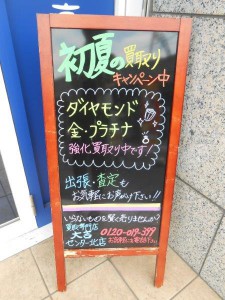 初夏の買取り
キャンペーン中
ダイヤモンド
金・プラチナ
強化買取り中です
出張・査定も
お気軽にお声がけ下さい!!
いらないものを賢く売りませんか?
買取専門店
大吉
センター北店
0120-019-399
お気軽にお電話下さい